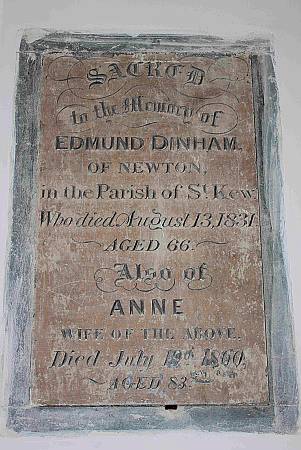 SACRED
to the Memory of
EDMUND DINHAM,
OF NEWTON,
in the Parish of St. Kew
Who died August 13, 1831.
AGED 66.
Also of
ANNE
WIFE OF THE ABOVE.
Died July 12th 1860,
AGED 83.